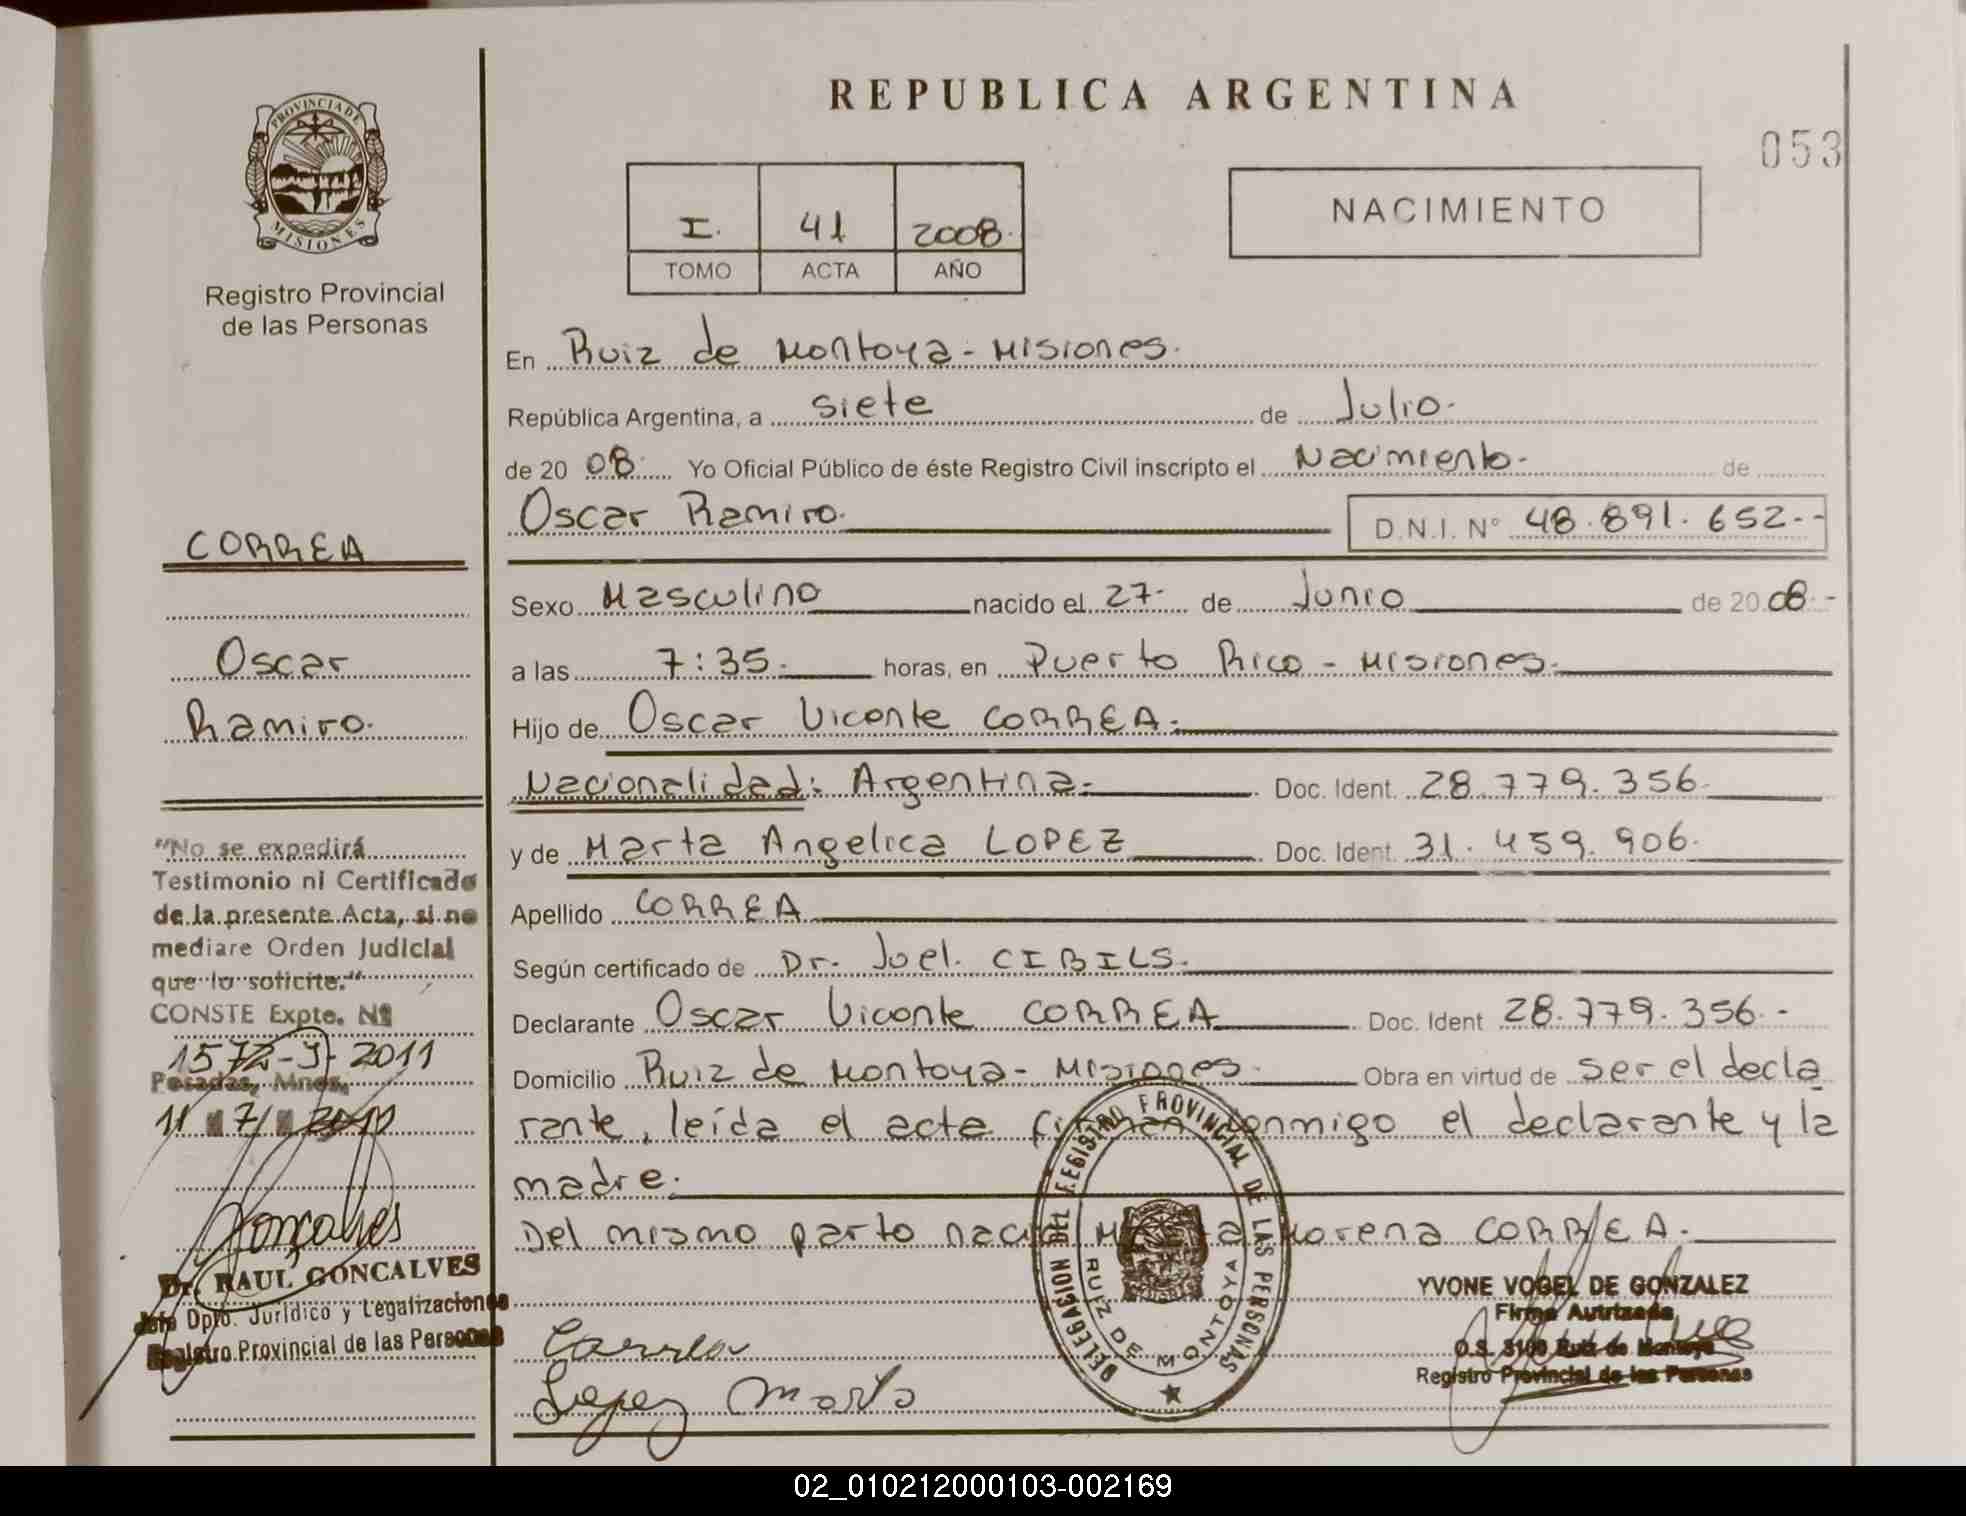 PROVINCIA DE
MISIONES
Registro Provincial
de las Personas
REPUBLICA ARGENTINA
053
I. 41 2008.
TOMO ACTA AÑO
NACIMIENTO
En Ruiz de Montoya - Misiones.
República Argentina, a siete de Julio.
de 20 08. Yo Oficial Público de éste Registro Civil inscripto el Nacimiento. de
Oscar Ramiro. D.N.I. N° 48.891.652.-
Sexo Masculino nacido el 27. de Junio de 20 08.-
a las 7:35. horas, en Puerto Rico - Misiones.
Hijo de Oscar Vicente CORREA.
Nacionalidad: Argentina. Doc. Ident. 28.779.356.
y de Marta Angelica LOPEZ Doc. Ident. 31.459.906.
Apellido CORREA
Según certificado de Dr. Joel CIBILS.
Declarante Oscar Vicente CORREA Doc. Ident 28.779.356.-
Domicilio Ruiz de Montoya - Misiones. Obra en virtud de ser el decla
rante, leída el acta firman conmigo el declarante y la
madre.
Del mismo parto nació Morena CORREA.
CORREA
Oscar
Ramiro.
"No se expedirá
Testimonio ni Certificado
de la presente Acta, si no
mediare Orden Judicial
que lo solicite."
CONSTE Expte. Nº
1572-J-2011
Posadas, Mnes,
11 7 2011
Gonçalves
Dr. RAUL GONCALVES
Jefe Dpto. Jurídico y Legalizaciones
Registro Provincial de las Personas
Correa
Lopez Marta
DELEGACION DEL REGISTRO PROVINCIAL DE LAS PERSONAS
RUIZ DE MONTOYA
YVONE VOGEL DE GONZALEZ
Firma Autrizada
O.S. 3100 Ruiz de Montoya
Registro Provincial de las Personas
02_010212000103-002169